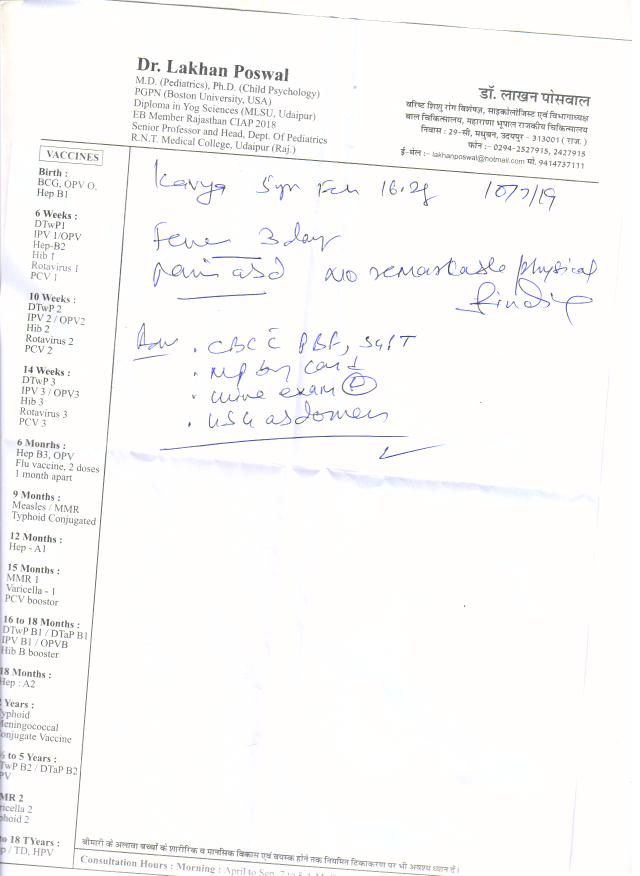 Dr. Lakhan Poswal
M.D. (Pediatrics), Ph.D. (Child Psychology)
PGPN (Boston University, USA)
Diploma in Yog Sciences (MLSU, Udaipur)
EB Member Rajasthan CIAP 2018
Senior Professor and Head, Dept. Of Pediatrics
R.N.T. Medical College, Udaipur (Raj.)
डॉ. लाखन पोसवाल
वरिष्ठ शिशु रोग विशेषज्ञ, साइकोलोजिस्ट एवं विभागाध्यक्ष
बाल चिकित्सालय, महाराणा भूपाल राजकीय चिकित्सालय
निवास : 29-सी, मधुबन, उदयपुर - 313001 ( राज. )
फोन :- 0294-2527915, 2427915
ई-मेल :- lakhanposwal@hotmail.com मो. 9414737111
VACCINES
Birth :
BCG, OPV O,
Hep B1
6 Weeks :
DTwP1
IPV 1/OPV
Hep-B2
Hib 1
Rotavirus 1
PCV 1
10 Weeks :
DTwP 2
IPV 2 / OPV2
Hib 2
Rotavirus 2
PCV 2
14 Weeks :
DTwP 3
IPV 3 / OPV3
Hib 3
Rotavirus 3
PCV 3
6 Monrhs :
Hep B3, OPV
Flu vaccine, 2 doses
1 month apart
9 Months :
Measles / MMR
Typhoid Conjugated
12 Months :
Hep - A1
15 Months :
MMR 1
Varicella - 1
PCV boostor
16 to 18 Months :
DTwP B1 / DTaP B1
IPV B1 / OPVB
Hib B booster
18 Months :
Hep : A2
Years :
yphoid
Meningococcal
onjugate Vaccine
to 5 Years :
TwP B2 / DTaP B2
PV
MR 2
ricella 2
phoid 2
to 18 TYears :
p / TD, HPV
Kavya 5yr Fch 16.2g 10/7/19
Fever 3 day
Pain abd No remarkable physical
finding
Adv . CBC c̄ PBF, SGPT
. MP by card
. Urine exam
. USG abdomen
बीमारी के अलावा बच्चों के शारीरिक व मानसिक विकास एवं वयस्क होने तक नियमित टिकाकरण पर भी अवश्य ध्यान दें।
Consultation Hours : Morning : April to Sep. 7 to 8